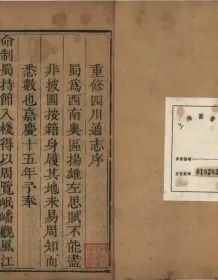 重修四川通志序
蜀爲西南奧區揚雄左思賦不能盡
非披圖按籍身履其地未易周知而
悉數也嘉慶十五年予奉
命制蜀持節入棧得以周覽岷嶓觀風江